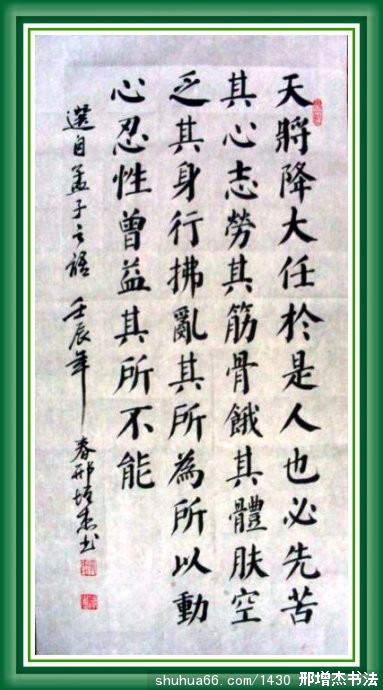 天將降大任於是人也必先苦
其心志勞其筋骨餓其體肤空
乏其身行拂亂其所為所以動
心忍性曾益其所不能
選自孟子之語 壬辰年春邢增杰书
shuhua66.com/1430 邢增杰书法